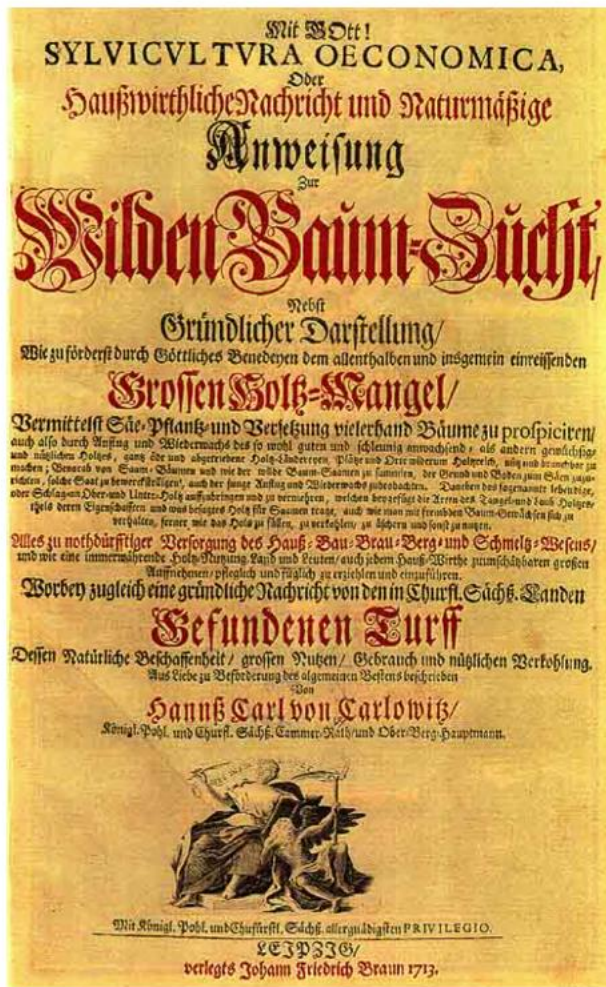 Mit GOtt!
SYLVICVLTVRA OECONOMICA,
Oder
Haußwirthliche Nachricht und Naturmäßige
Anweisung
Zur
Wilden Baum-Zucht/
Nebst
Gründlicher Darstellung/
Wie zu förderst durch Göttliches Benedeyen dem allenthalben und insgemein einreissenden
Grossen Holtz-Mangel/
Vermittelst Säe-Pflantz-und Versetzung vielerhand Bäume zu prospiciren/
auch also durch Anflug und Wiederwachs des so wohl guten und schleunig anwachsend, als andern gewächsig,
und nützlichen Holtzes, gantz öde und abgetriebene Holtz-Ländereyen, Plätze und Orte wiederum Holtzreich, nütz und brauchbar zu
machen; Benorab von Saam-Bäumen und wie der wilde Baum-Saamen zu sammlen, der Grund und Boden zum Säen zuzu-
richten, solche Saat zu bewerckstelligen, auch der junge Anflug und Wiederwachs zu beobachten. Daneben das sogenannte lebendige,
oder Schlag-an Ober- und Unter-Holtz auffzubringen und zu vermehren, welchen beygefügt die Arten des Tangel- und Laub-Holtzes,
theils deren Eigenschafften und was besagtes Holtz für Saamen trage, auch wie man mit frembden Baum-Gewächsen sich zu
verhalten, ferner wie das Holtz zu fällen, zu verkohlen, zu äschern und sonst zu nutzen.
Alles zu nothdürfftiger Versorgung des Hauß-Bau-Brau-Berg-und Schmeltz-Wesens/
und wie eine immerwährende Holtz-Nutzung Land und Leuten/ auch jedem Hauß-Wirthe zu unschätzbaren großen
Auffnehmen/ pfleglich und füglich zu erziehlen und einzuführen.
Worbey zugleich eine gründliche Nachricht von den in Churfl. Sächß. Landen
Gefundenen Turff
Dessen Natürliche Beschaffenheit/ grossen Nutzen/ Gebrauch und nützlichen Verkohlung.
Aus Liebe zu Beförderung des algemeinen Bestens beschrieben
Von
Hannß Carl von Carlowitz/
Königl. Pohl. und Churfl. Sächß. Cammer-Rath/ und Ober-Berg-Hauptmann.
Mit Königl. Pohl. und Churfürstl. Sächß. allergnädigsten PRIVILEGIO.
LEIPZIG/
verlegts Johann Friedrich Braun 1713.